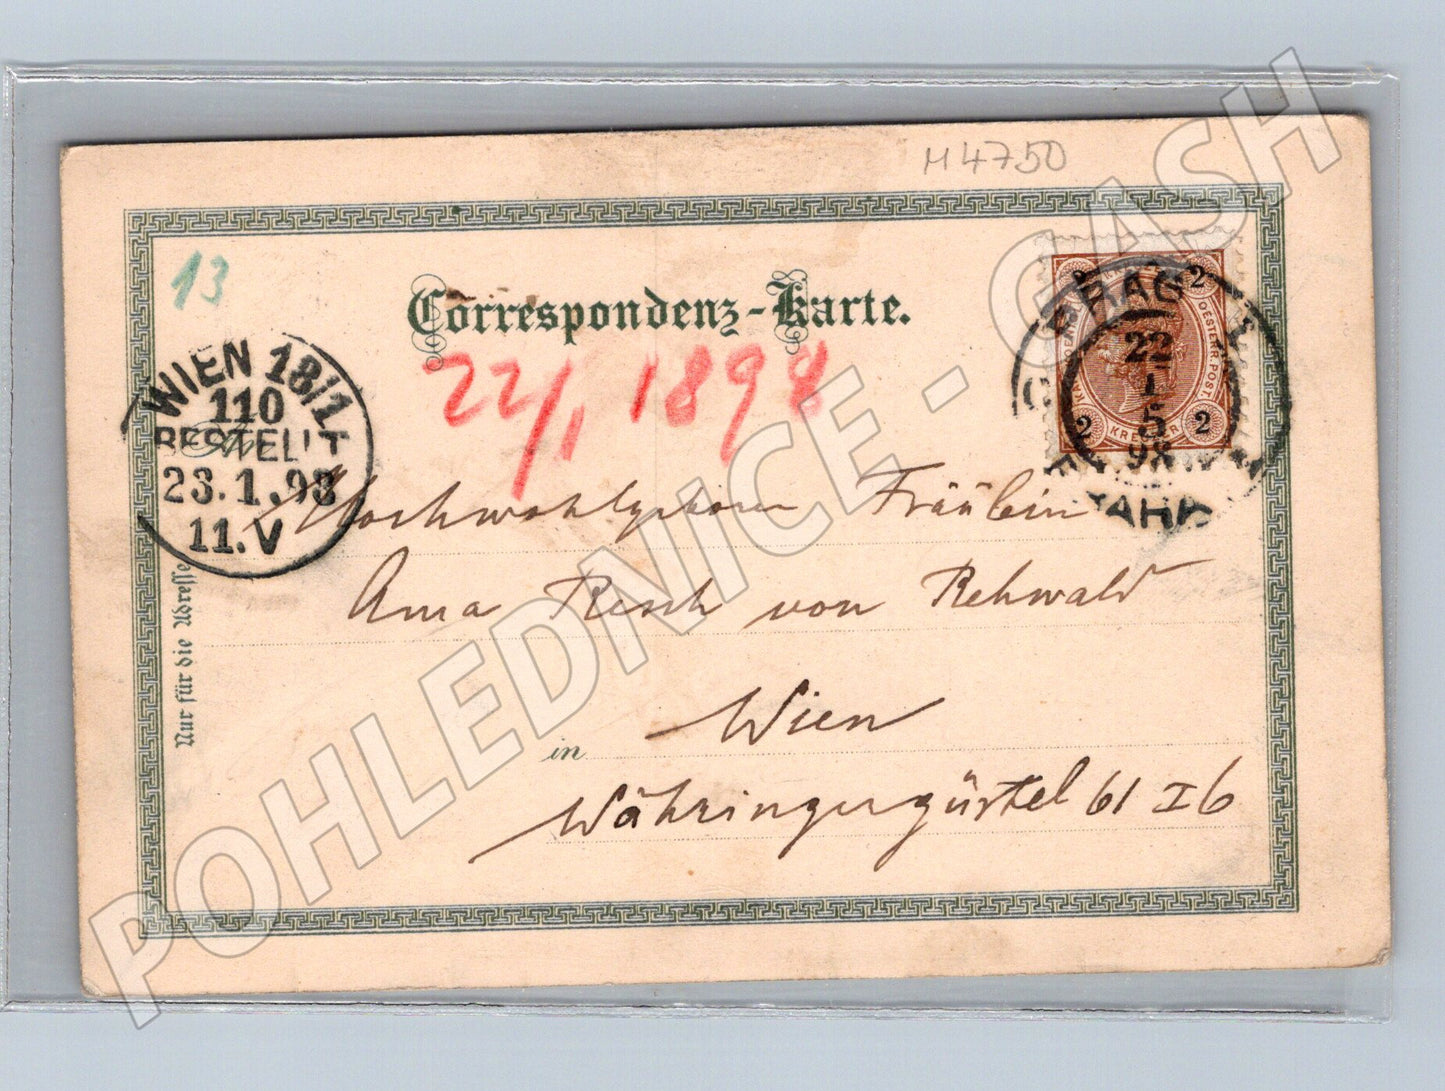 M4750
13
Correspondenz-Karte.
22/1 1898
WIEN 18/1
110
BESTELLT
23.1.98
11.V
An
PRAG
22
1
5
98
2 2
2 KREUZER 2
OESTERR.POST.
Hochwohlgeboren Fräulein
Anna Resch von Rehwald
in Wien
Währingergürtel 61 I 6
Nur für die Adresse
POHLEDNICE - GASH